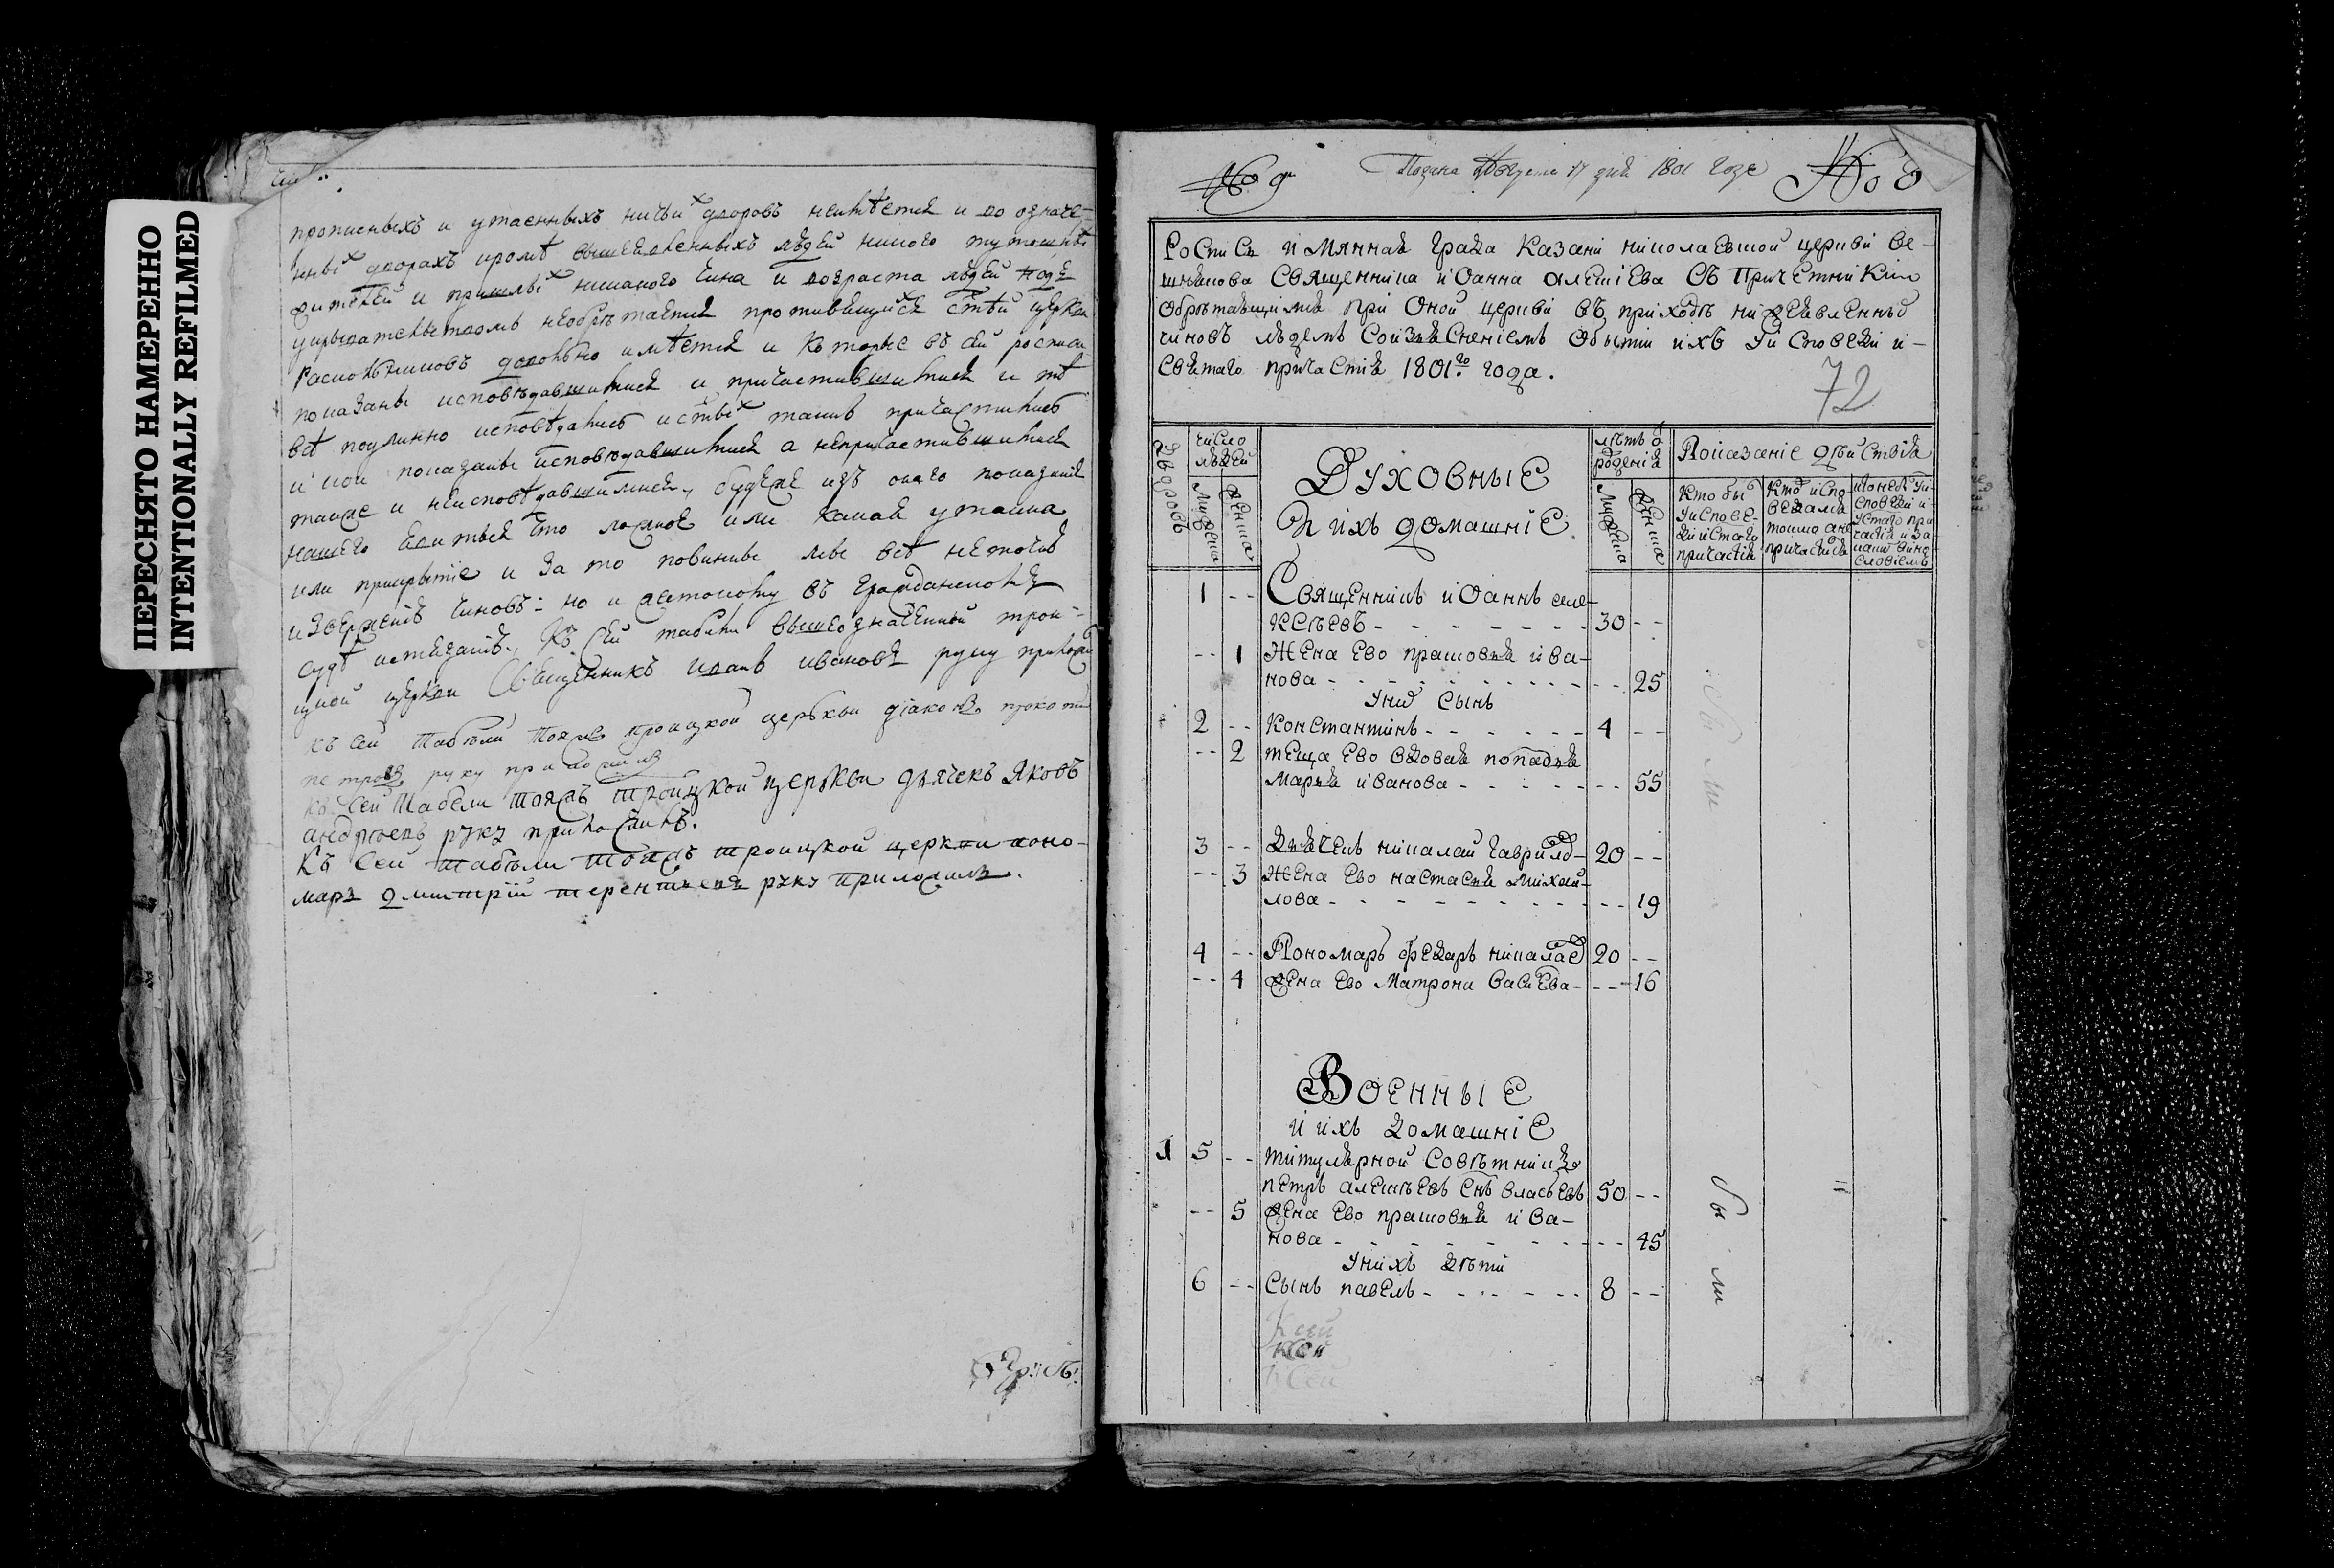 ПЕРЕСНЯТО НАМЕРЕННО
INTENTIONALLY REFILMED
прописныхъ и утаенныхъ ничьихъ дворовъ неимѣется и во означе-
нныхъ дворахъ кромѣ вышеявленныхъ людей никого тутошнихъ
жителей и пришлыхъ никакого чина и возраста людей подъ
укрывательствомъ необрѣтается противящийся стѣй церкви
раскольниковъ доволно имѣется и которые въ сей росписи
показаны исповѣдавшимися и причастившимися и тѣ
всѣ подлинно исповѣдались и стыхъ таинъ причастились
и кои показаны исповѣдавшимися а непричастившимися
также и неисповѣдавшимися, будеже изъ онаго показания
нашего явиться что ложное или какая утайка
или прикрытие и за то повинны мы всѣ неточию
извержению чиновъ но и жестокому въ гражданскомъ
судѣ истязанию. Къ сей табели вышеозначенной трои-
цкой церкви священникъ иванъ ивановъ руку приложи
къ сей табѣли тояжъ троицкой церькви диаконъ прокопий
петровъ руку приложилъ
къ сей табели тояжъ троицкой церкви дьячекъ Яковъ
андрѣевъ руку приложилъ.
Къ сей табѣли тояжъ троицкой церкви поно-
марь дмитрій терентьевъ руку приложилъ.
№ 9
Подана Августа 17 дня 1801 года
№ 8
Роспись имянная града Казани николаевской церкви ве-
шнякова священника иоанна алексіева съ причетники
обрѣтающимся при оной церкви въ приходѣ нижеявленныхъ
чиновъ людемъ соизъясненіемъ о бытии ихъ у исповѣди и
святаго причастія 1801го года.
72
Дворовъ
число людей
Мужеска
Женска
Духовные
и ихъ домашніе
лѣтъ отъ рожденія
Мужеска
Женска
Показаніе дѣйствія
Кто былъ у исповѣди и стаго причастія
Кто исповѣдался токмо а не причастился
1 -- Священникъ иоаннъ але-
ксѣевъ - 30 --
-- 1 Жена ево прасковья ива-
нова - -- 25
У нихъ сынъ
2 -- Константинъ - 4 --
-- 2 теща ево вдовая попадья
Марья иванова - -- 55
3 -- Дьячекъ николай гаврилов 20 --
-- 3 Жена ево настасья михай-
лова - -- 19
4 -- Пономарь федаръ николаев 20 --
-- 4 жена ево Матрона васиева - -- 16
были
Военные
и ихъ домашніе
1 5 -- титулярной совѣтникъ
петръ алексѣевъ снъ власьевъ 50 --
-- 5 жена ево прасковья ива-
нова - -- 45
У нихъ дѣти
6 -- Сынъ павелъ - 8 --
были
къ сей